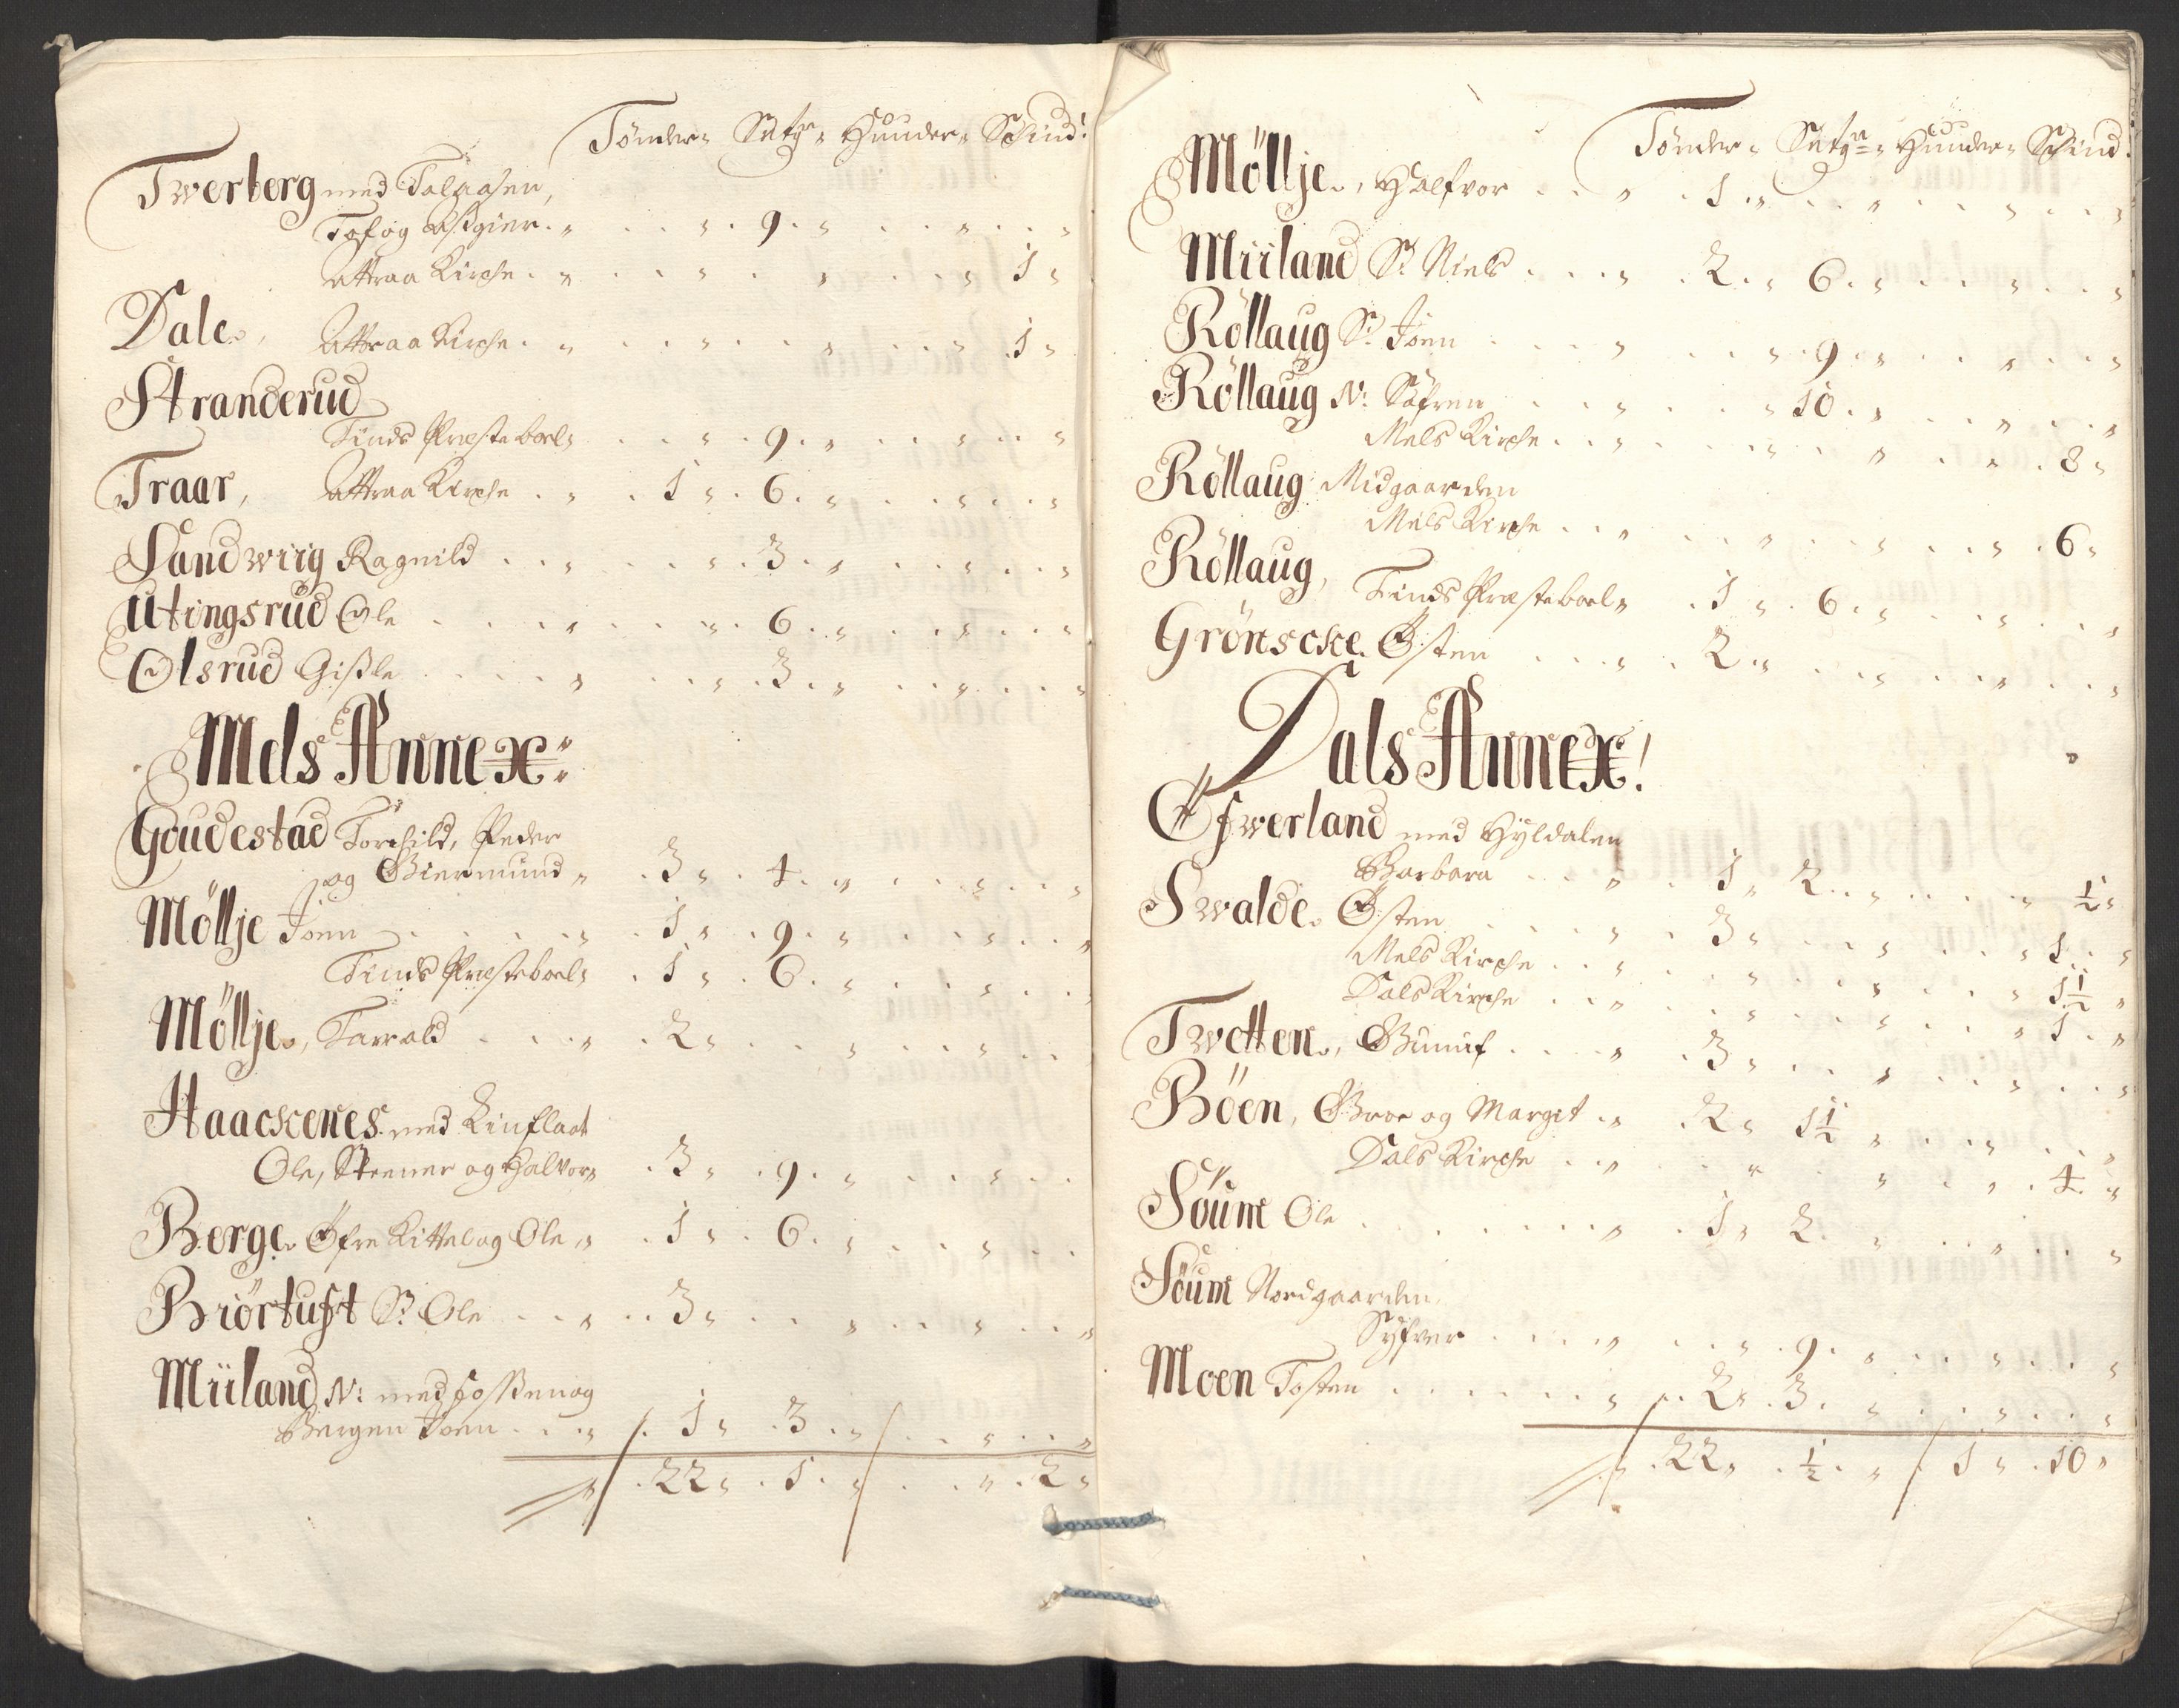 Tønder „ Sett „ Huuder „ Schind:
Twerberg med Talaasen,
Tof og Asgier . „ . . „ . 9 . „ . . „ . . „
Attraa Kirche . „ . . „ . . „ . . „ 1 „
Dale, Attraa Kirche . „ . . „ . . „ . . „ 1 „
Stranderud
Tinds Præsteboel „ . . „ . 9 . „ . . „ . . „
Traar, Attraa Kirche . „ . 1 „ . 6 . „ . . „ . . „
Sandwiig Ragnild . . „ . . „ . 3 . „ . . „ . . „
Utingsrud Ole . . . „ . . „ . 6 . „ . . „ . . „
Olsrud Gisle . . . „ . . „ . 3 . „ . . „ . . „
Mels Annex:
Goudestad Torchild, Peder
og Biermund „ . 3 „ . 4 . „ . . „ . . „
Möllje Joen . . . „ . 1 „ . 9 . „ . . „ . . „
Tinds Præsteboel „ . 1 „ . 6 . „ . . „ . . „
Möllje, Tarrald . . . „ . 2 „ . . „ . . „ . .
Haackenes med Kinflaat
Ole, Steener og Halvor „ . 3 „ . 9 . „ . . „ . .
Berge Øfre Kittel og Ole „ . 1 „ . 6 . „ . . „ . .
Biörtuft S: Ole . . „ . . 3 „ . . „ . . „ . . „
Miiland N: med Fossen og
Bergen Joen . . „ . 1 „ . 3 . „ . . „ . . „
„ . 22 „ . 1 . „ . . „ . 2 „
Tønder „ Sett „ Huuder „ Schind:
Möllje, Halfvor . . „ . 1 . „ . . „ . . „
Miiland S: Niels . . . „ . 2 . „ 6 . „ . . „ . . „
Röllaug S: Joen . . . „ . . „ . 9 . „ . . „ . . „
Röllaug N: Søfren . . „ . . „ 10 . „ . . „ . . „
Mels Kirche . . „ . . „ . . „ . „ . 8 „
Röllaug Midgaarden
Mels Kirche . . „ . . „ . . „ . . „ . 6 „
Röllaug, Tinds Præsteboel „ . 1 „ . 6 . „ . . „ . . „
Grönscke Østen . . . „ . 2 . „ . . „ . . „ . . „
Dals Annex!
Öfwerland med Hyldalen
Barbara . . „ . 1 „ 2 . . „ . . . „ ½ „
Swalde Østen . . . „ . 3 „ . . „ . . „ 1 . „
Mels Kirche . . „ . . „ . . „ . . „ 1½ „
Dals Kirche . . „ . . „ . . „ . . „ 1 . „
Twetten, Gunuf . . . „ . 3 „ . . „ . . „ . . „
Böen, Groe og Margit . „ . 2 „ 1½ „ . . „ . . „
Dals Kirche . . „ . . „ . . „ . „ . 4 . „
Söum Ole . . . . „ . 1 „ 2 . „ . . „ . . „
Söum Nordgaarden
Syfver . . . „ . . „ . 9 . „ . . „ . . „
Moen Tosten . . . . „ . 2 „ . 3 . „ . . „ . . „
„ . 22 „ . ½ . „ 1 „ . 10 „